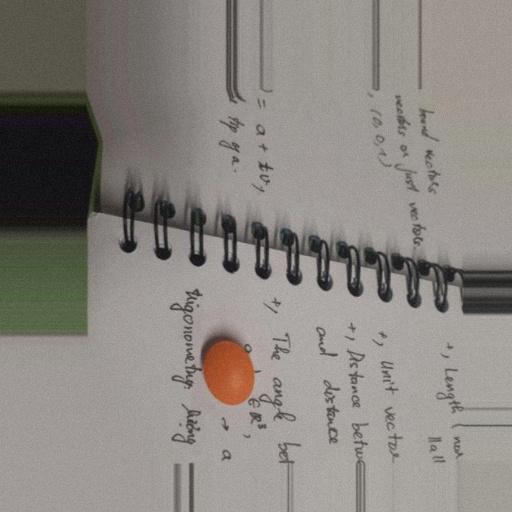 bound vectors
vectors or just vectors.
, (0,0,1)
= a + tv,
tip of a.
+, Length
||a||
+, Unit vector
+, Distance betw
and distance
+, The angle bet
∈ℝ³,
→ a
trigonometry.